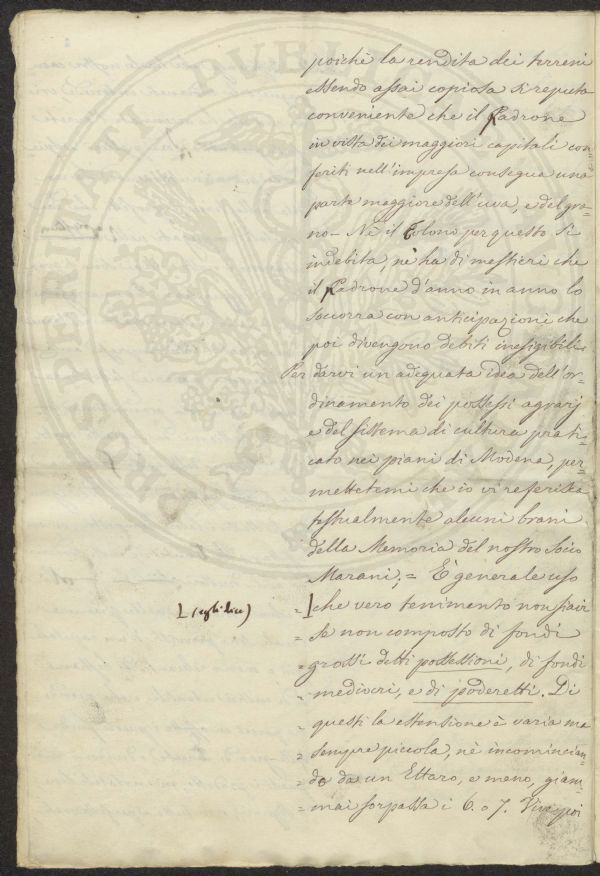 poichè la rendita dei terreni
essendo assai copiosa si reputa
conveniente che il Padrone
in vista dei maggiori capitali con=
feriti nell'impresa consegua una
parte maggiore dell'uva, e del gra=
no – Nè il Colono per questo si
indebita, nè ha di mestieri che
il Padrone d'anno in anno lo
soccorra con anticipazioni che
poi divengono debiti inesigibili.
Per darvi un adequata idea dell'or=
dinamento dei possessi agrarj
e del sistema di cultura prati=
cato nei piani di Modena, per=
mettetemi che io vi referisca
testualmente alcuni brani
della Memoria del nostro Socio
Marani; = È generale uso
[ (egli dice)
= ] che vero tenimento non siavi
= se non composto di fondi
= grossi detti possessioni, di fondi
= mediocri, e di poderetti. Di
= questi la estensione è varia ma
= sempre piccola, nè incomincian=
= do da un Ettaro, e meno, giam=
= mai sorpassa i 6. o 7. Vi poi
PROSPERITATI PUBLICAE